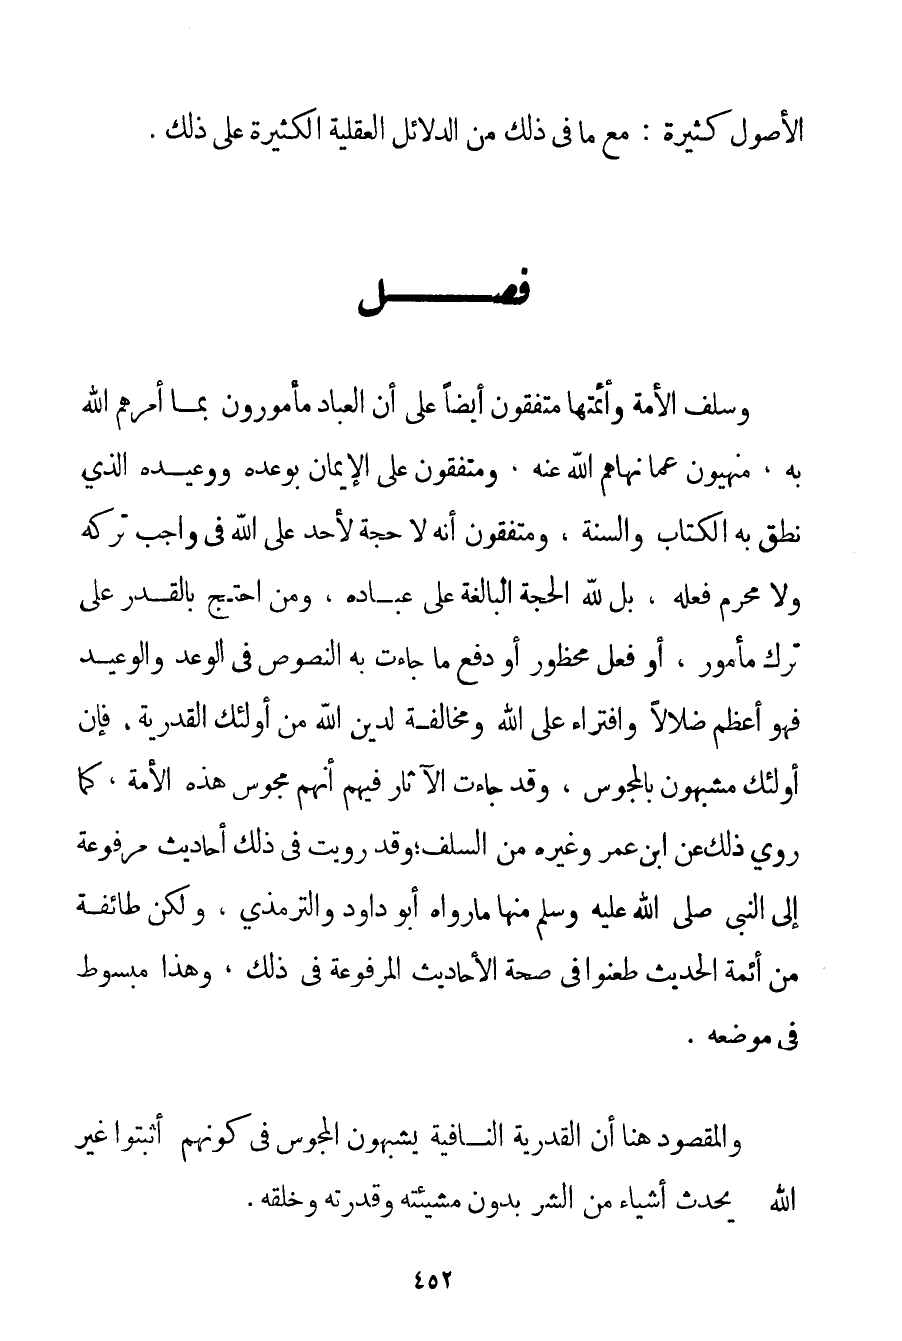 الأصول كثيرة : مع ما فى ذلك من الدلائل العقلية الكثيرة على ذلك .
فصـــــــل
وسلف الأمة وأئمتها متفقون أيضاً على أن العباد مأمورون بمـا أمرهم الله
به ، منهيون عما نهاهم الله عنه ، ومتفقون على الإيمان بوعده ووعيـده الذي
نطق به الكتاب والسنة ، ومتفقون أنه لا حجة لأحد على الله فى واجب تركه
ولا محرم فعله ، بل لله الحجة البالغة على عبـاده ، ومن احتـج بالقـدر على
ترك مأمور ، أو فعل محظور أو دفع ما جاءت به النصوص فى الوعد والوعيـد
فهو أعظم ضلالاً وافتراء على الله ومخالفـة لدين الله من أولئك القدرية ، فإن
أولئك مشبهون بالمجوس ، وقد جاءت الآثار فيهم أنهم مجوس هذه الأمة ، كما
روي ذلك عن ابن عمر وغيره من السلف؛ وقد رويت فى ذلك أحاديث مرفوعة
إلى النبى صلى الله عليه وسلم منها مارواه أبو داود والترمذي ، ولكن طائفـة
من أئمة الحديث طعنوا فى صحة الأحاديث المرفوعة فى ذلك ، وهذا مبسوط
فى موضعه .
والمقصود هنا أن القدرية النـافية يشبهون المجوس فى كونهم أثبتوا غير
الله يحدث أشياء من الشر بدون مشيئته وقدرته وخلقه .
٤٥٢